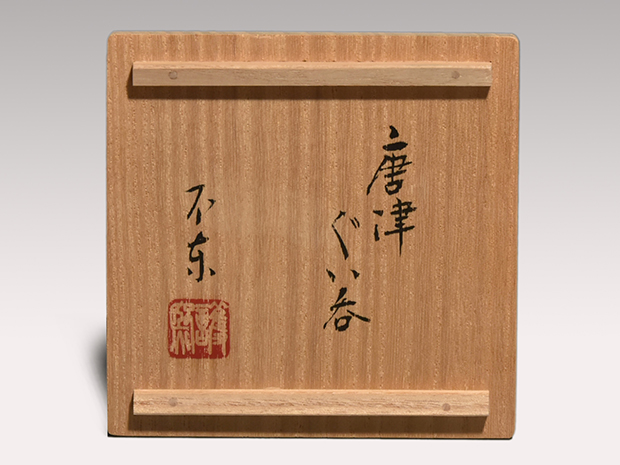 唐津
ぐい呑
不東